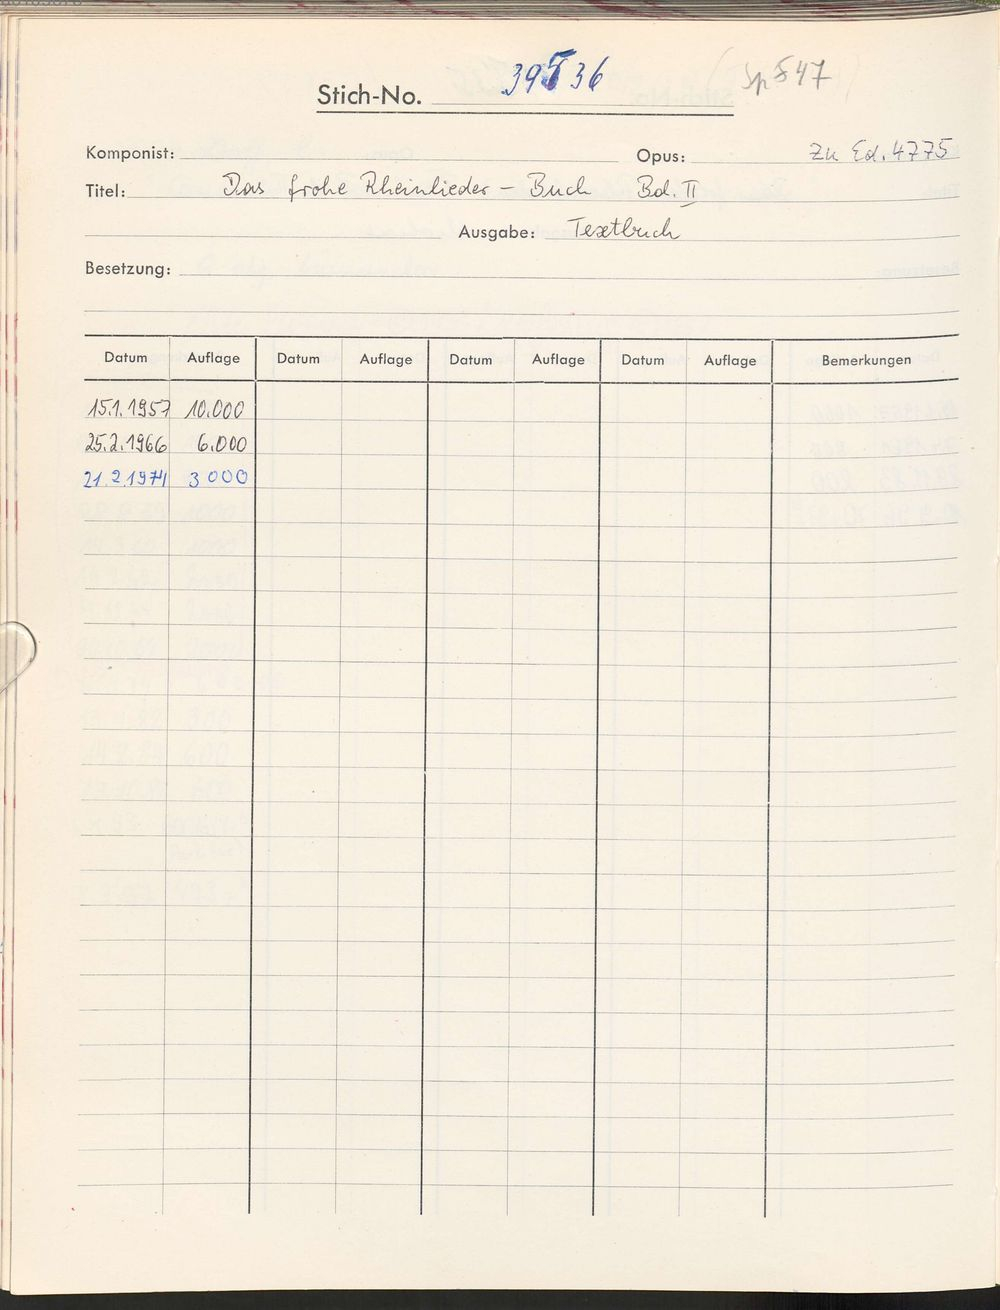 Stich-No. 39536
Komponist: Opus: Zu Ed. 4775
Titel: Das frohe Rheinlieder - Buch Bd. II
Ausgabe: Textbuch
Besetzung:
Datum Auflage Datum Auflage Datum Auflage Datum Auflage Bemerkungen
15.1.1957 10.000
25.2.1966 6.000
21.2.1974 3000